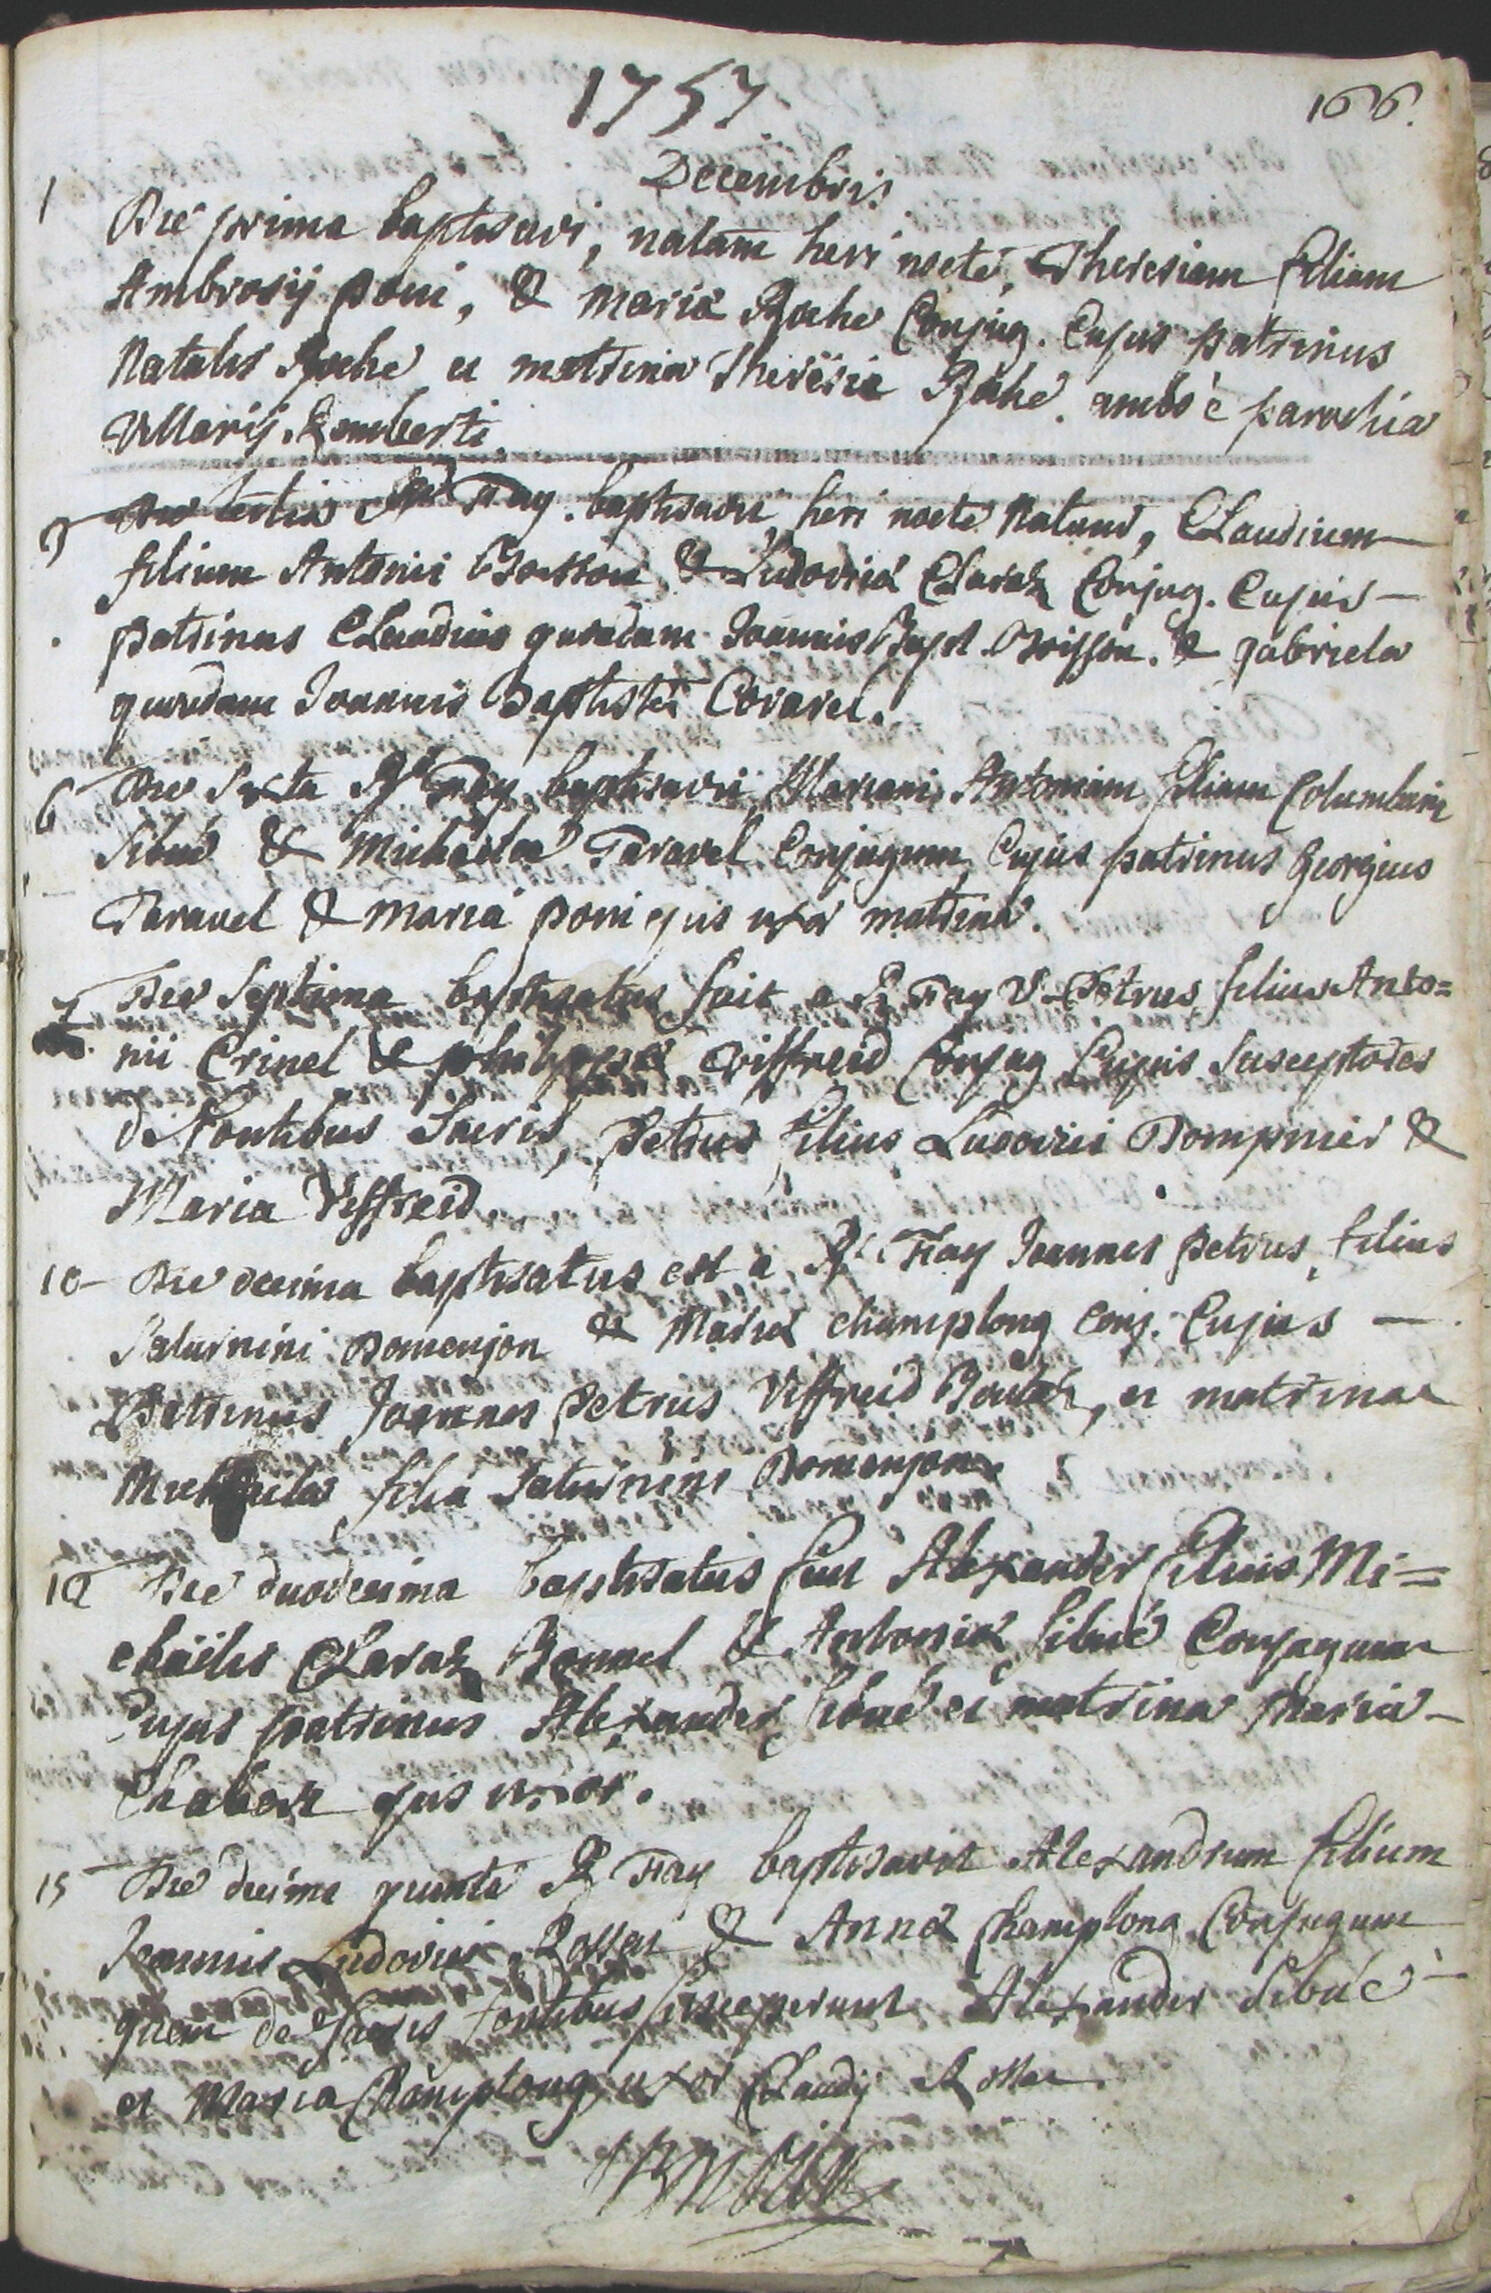 1757
166.
Decembris
1 Die prima baptisavi, natam heri nocte, Theresiam filiam
Ambrosij poni, & mariæ Roche Conjug. Cujus patrinus
Natalis Roche et matrina Theresia Roche. ambo è parochia
Villarij Lemberti
3 Die tertia Rd Fay. baptisavit heri nocte Natum, Claudium
filium Antonii Boisson & Ludovicæ Claraz Conjug. Cujus
patrinus Claudius quondam Joannis Bapt. Boisson. & gabriela
quondam Joannis Baptistæ Covarel.
6 Die Sexta Rd Fay baptisavit Mariam Antoniam filiam Columbani
Sibué & Michaelæ Taravel Conjugum, Cujus patrinus georgius
Taravel & maria poni ejus uxor matrina.
7 Die Septima baptisatus fuit a R Fay V. Petrus filius Anto=
nii Crinel & philippæ Viffreid Conjug Cujus Susceptores
de Fontibus Sacris, petrus filius Ludovici Dompnier &
Maria Viffreid.
10 Die decima baptisatus est a Rd Fay Joannes petrus, filius
Saturnini Domenjon & Mariæ champlong conj. Cujus
Patrinus Joannes petrus Viffreid Boutaz, et matrina
Michaela filia Saturnini Domenjon
12 Die duodecima baptisatus fuit Alexander filius Mi=
chaëlis Claraz Bonnel & Antoniæ Sibué Conjugum
Cujus patrinus Alexander Sibué et matrina Maria
Chaboz ejus uxor.
15 Die decima quinta R Fay baptisavit Alexandrum filium
Joannis Ludovici Rossat & Annæ Champlong Conjugum
quem de Sacris fontibus susceperunt Alexander Sibué
et Maria Champlong, uxor Claudij Rossat